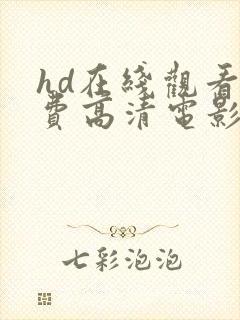 hd在綫觀看
費高清電影
七彩泡泡